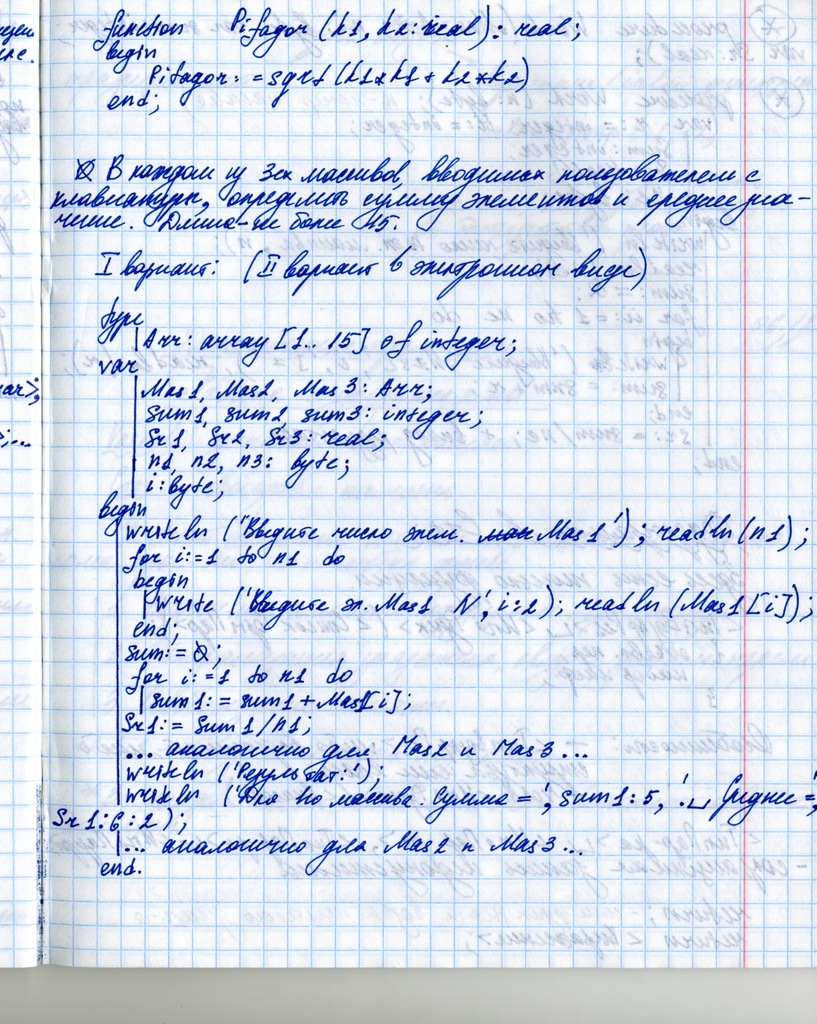 function Pifagor (k1, k2: real): real;
begin
Pifagor: = sqrt (k1*k1 + k2*k2)
end;
В каждом из 3ех массивов, вводимых пользователем с
клавиатуры, определить сумму элементов и среднее зна-
чение. Длина - не более 15.
I вариант: (II вариант в электронном виде)
type
Arr: array [1.. 15] of integer;
var
Mas1, Mas2, Mas3: Arr;
Sum1, sum2, sum3: integer;
Sr1, Sr2, Sr3: real;
n1, n2, n3: byte;
i: byte;
begin
writeln ('Введите число элем. Mas1'); readln (n1);
for i:=1 to n1 do
begin
write ('Введите эл. Mas1 N', i:2); readln (Mas1[i]);
end;
sum:= 0;
for i:=1 to n1 do
sum1:= sum1 + Mas1[i];
Sr1:= Sum1/n1;
... аналогично для Mas2 и Mas3 ...
writeln ('Результат:');
writeln ('Для 1го массива. Сумма =', sum1:5, '.␣ Среднее=',
Sr1:6:2);
... аналогично для Mas2 и Mas3 ...
end.